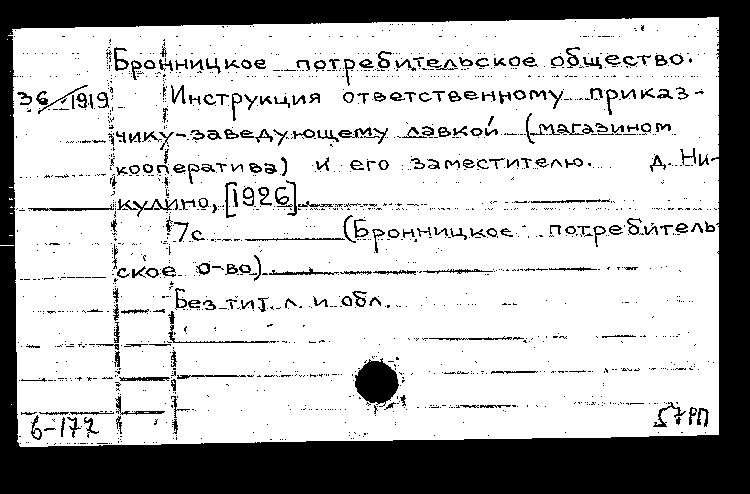 Бронницкое потребительское общество.
36/1919 Инструкция ответственному приказ-
чику-заведующему лавкой (магазином
кооператива) и его заместителю. д. Ни-
кулино, [1926].
7с. (Бронницкое потребитель
ское о-во).
Без тит. л. и обл.
6-177 57РП